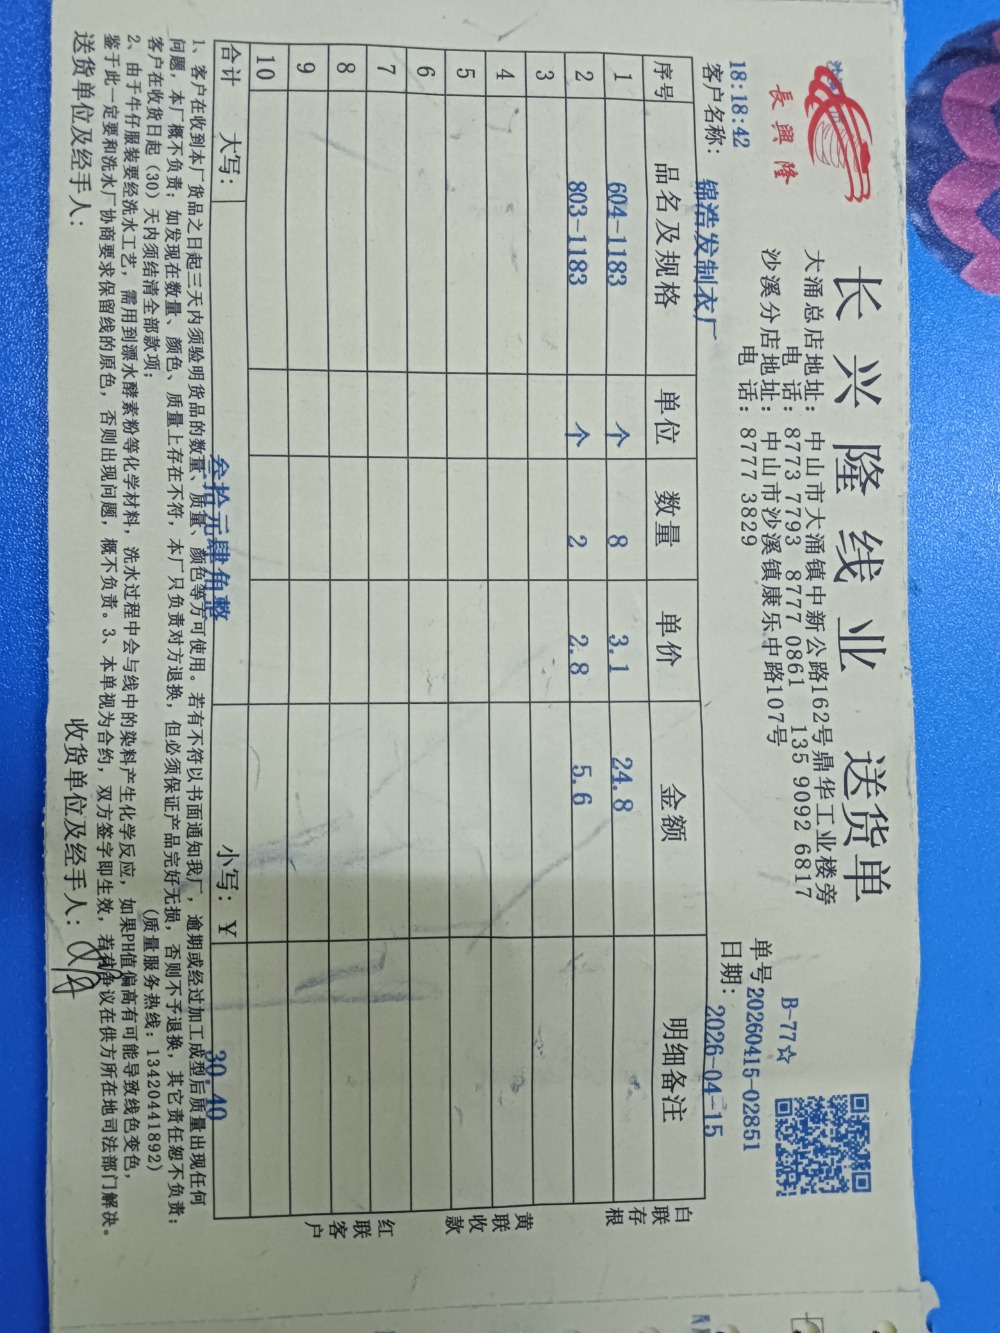 長興隆
长兴隆线业 送货单
大涌总店地址：中山市大涌镇中新公路162号鼎华工业楼旁
电 话：8773 7793 8777 0861 135 9092 6817
沙溪分店地址：中山市沙溪镇康乐中路107号
电 话：8777 3829
B-77☆
单号 20260415-02851
18:18:42
客户名称：锦浩发制衣厂
日期：2026-04-15
序号 品名及规格 单位 数量 单价 金额 明细备注
1 604-1183 个 8 3.1 24.8
2 803-1183 个 2 2.8 5.6
3
4
5
6
7
8
9
10
合计 大写：叁拾元肆角整 小写：￥ 30.40
白联存根
黄联收款
红联客户
1、客户在收到本厂货品之日起三天内须验明货品的数量、质量、颜色等方可使用。若有不符以书面通知我厂，逾期或经过加工成型后质量出现任何
问题，本厂概不负责；如发现在数量、颜色、质量上存在不符，本厂只负责对方退换，但必须保证产品完好无损，否则不予退换，其它责任恕不负责；
客户在收货日起（30）天内须结清全部款项； (质量服务热线：13420441892)
2、由于牛仔服装要经洗水工艺，需用到漂水酵素粉等化学材料，洗水过程中会与线中的染料产生化学反应，如果PH值偏高有可能导致线色变色，
鉴于此一定要和洗水厂协商要求保留线的原色，否则出现问题，概不负责。3、本单视为合约，双方签字即生效，若有争议在供方所在地司法部门解决。
送货单位及经手人： 收货单位及经手人：